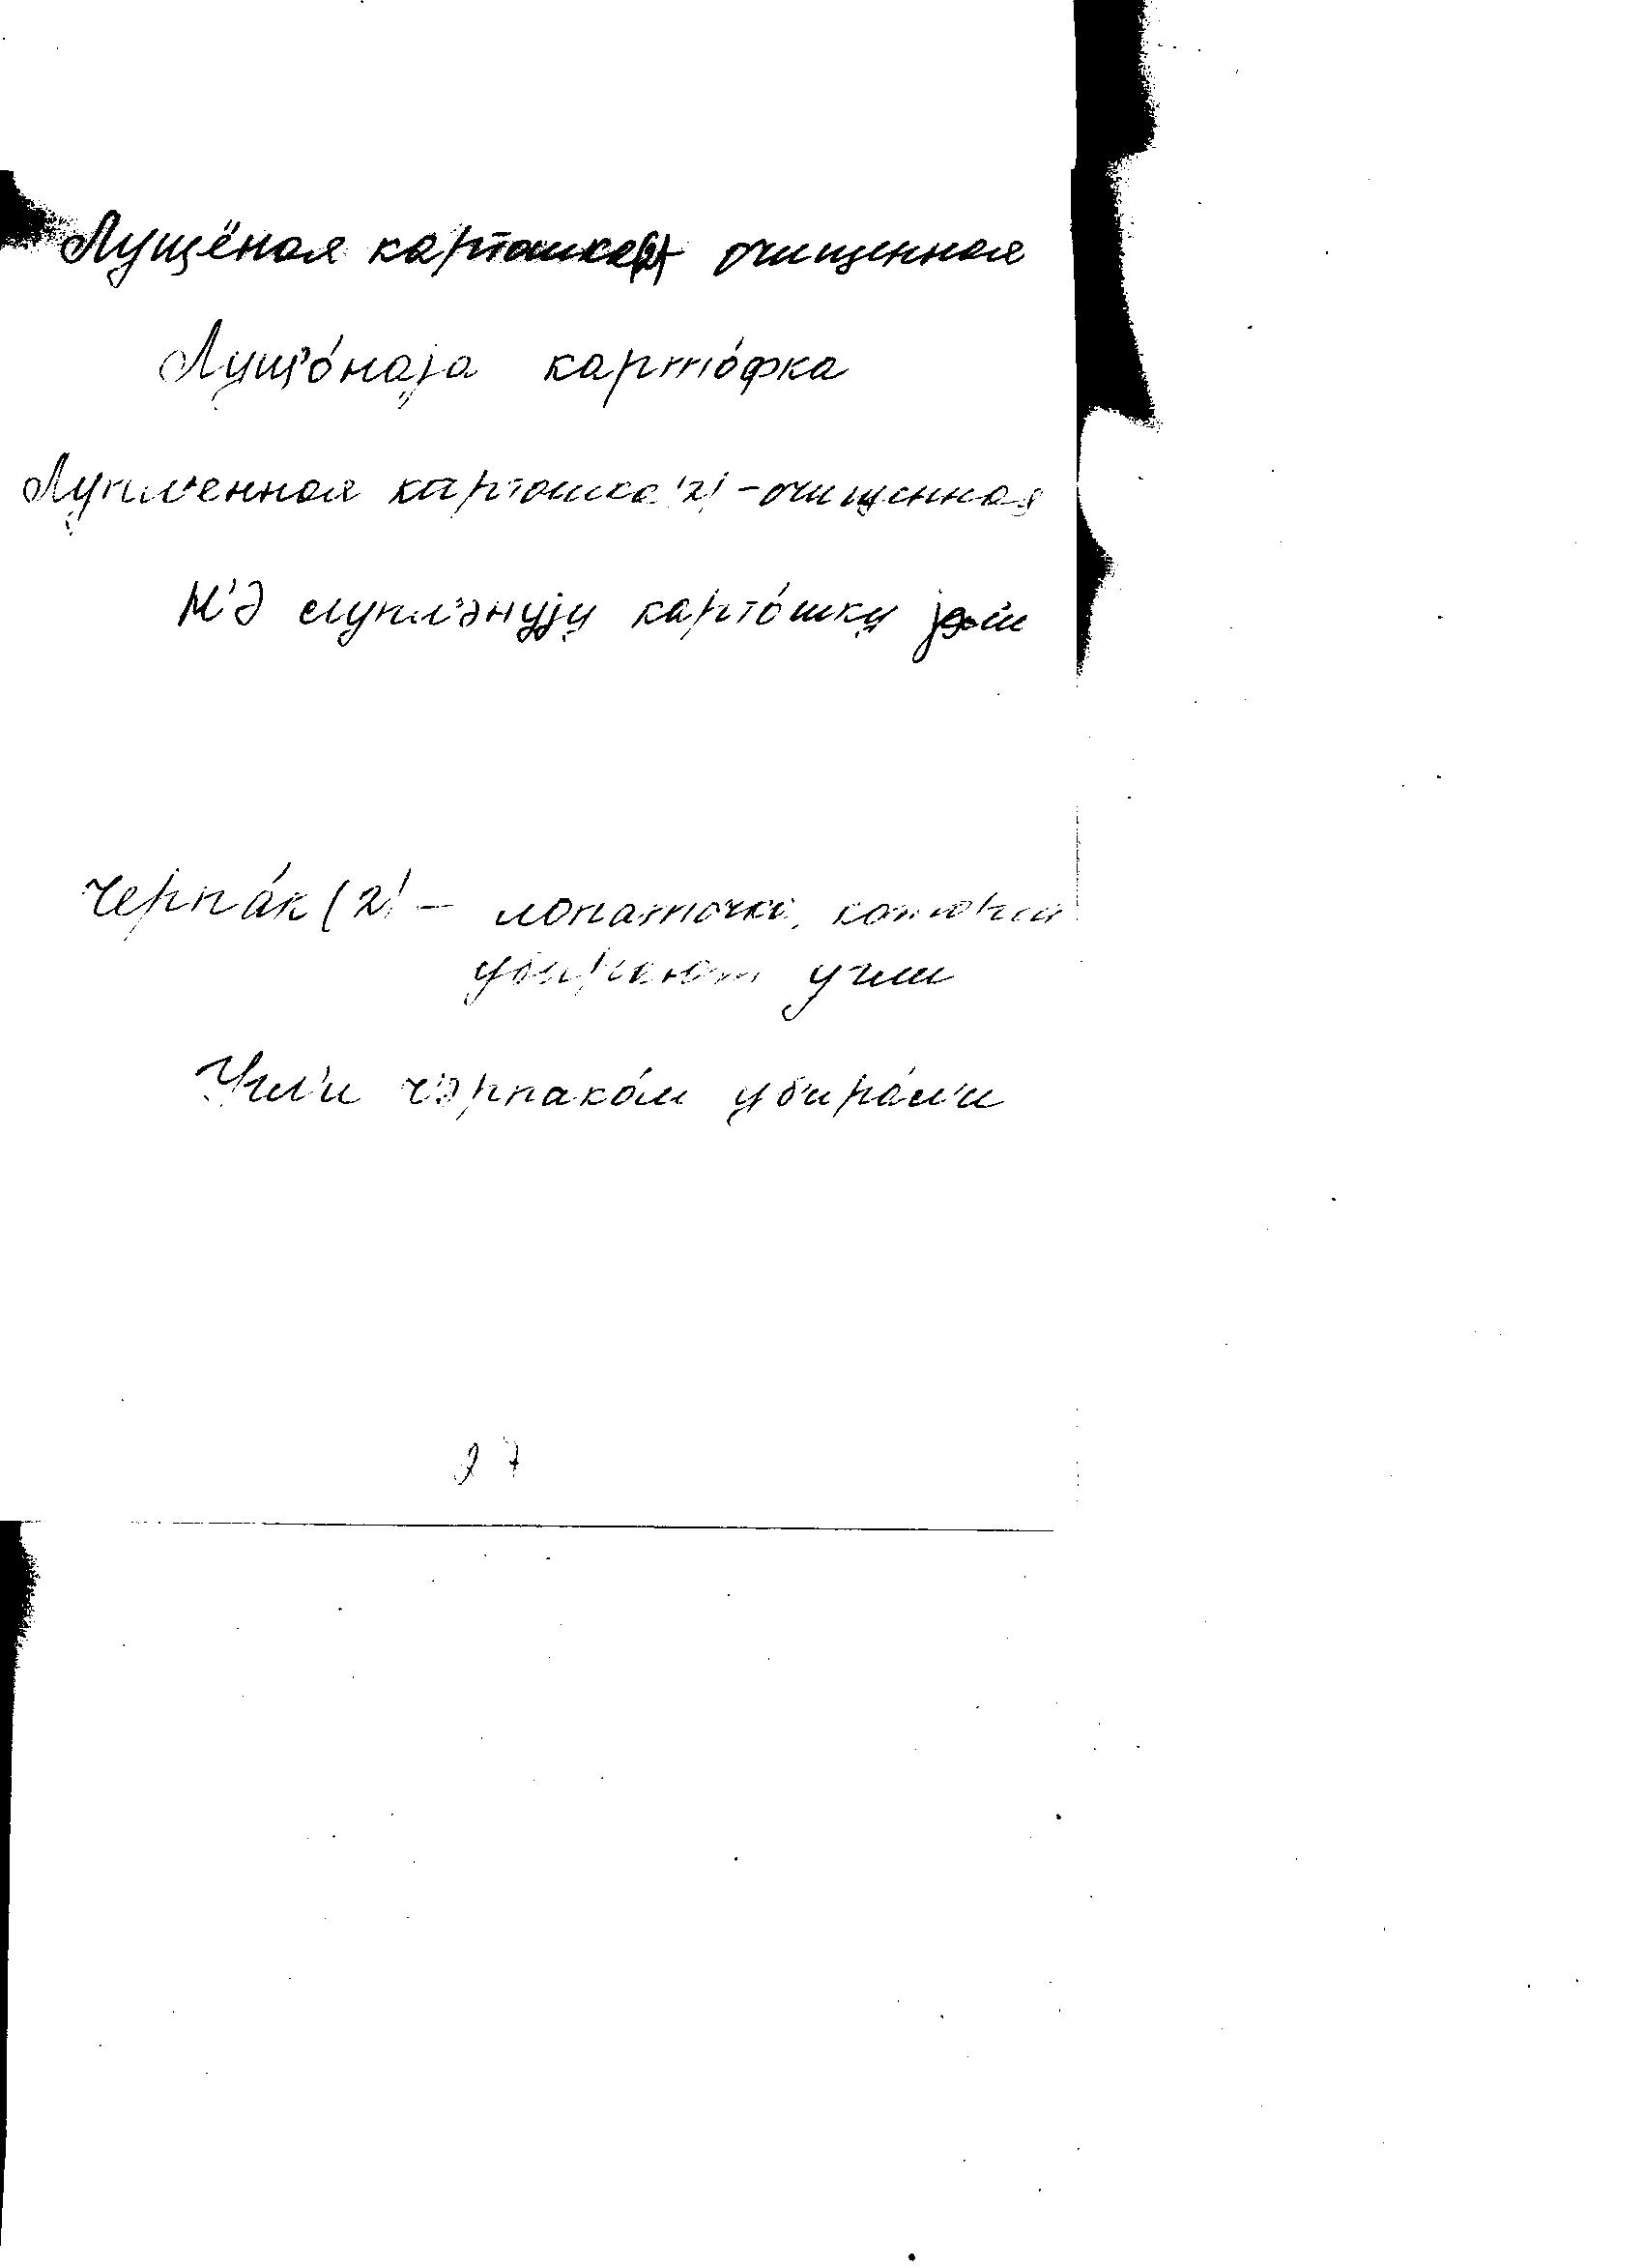 Лущёная картошка(2) очищенная
Лущ'о́наjа карто́фка
Лупленная картошка (2) – очищенная
М'э слупл'энуjу карто́шку
Черпа́к (2) – лопаточка, которой
убирают угли
Угл'и ч'эрпако́м уб'ира́л'и
27